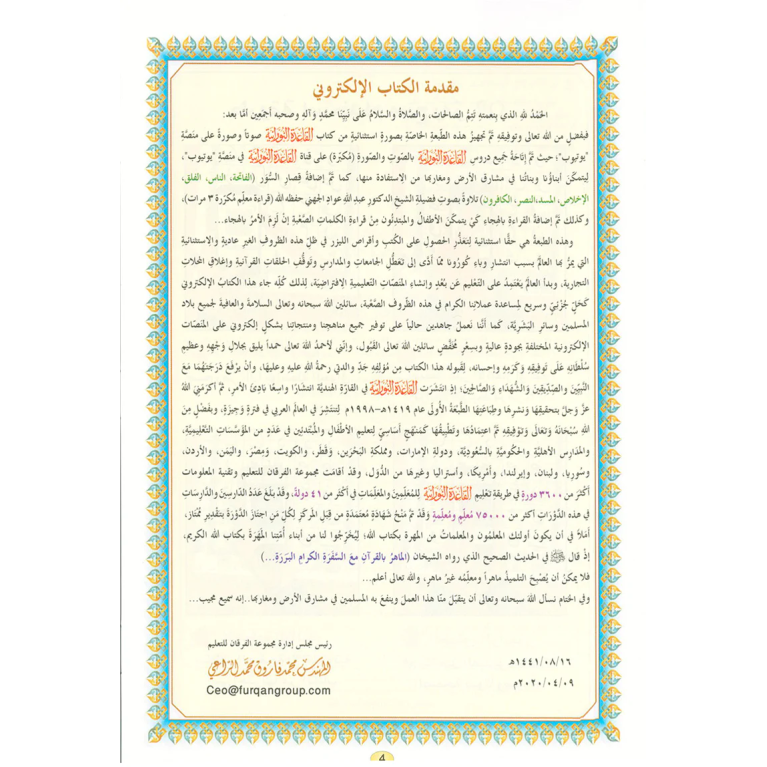 مقدمة الكتاب الإلكتروني
الحَمْدُ للهِ الذي بنعمتهِ تَتِمُّ الصالحات، والصَّلاةُ والسَّلامُ عَلَى نَبِيِّنا محمَّدٍ وَآلِهِ وصحبِهِ أَجمَعِينَ أمَّا بعد:
فبفضلٍ من الله تعالى وتوفيقِهِ تَمَّ تجهيزُ هذه الطَّبعةِ الخاصّةِ بصورةٍ استثنائيةٍ من كتاب القَاعِدَةِ النُّورَانِيَّةِ صوتاً وصورةً على منصَّةِ
"يوتيوب"؛ حيث تمَّ إتاحةُ جميعِ دروسِ القَاعِدَةِ النُّورَانِيَّةِ بالصَّوتِ والصّورةِ (مُكرَّرة) على قناة القَاعِدَةِ النُّورَانِيَّةِ في منصّةِ "يوتيوب"،
لِيتمكّنَ أبناؤُنا وبناتُنا في مشارق الأرض ومغاربها من الاِستفادة منها، كما تمَّ إضافةُ قِصارِ السُّوَر (الفاتحة، الناس، الفلق،
الإخلاص، المسد، النصر، الكافرون) تلاوةً بصوتِ فضيلةِ الشيخ الدكتور عبد الله عواد الجهني حفظه الله (قراءة معلِّم مُكرّرة ٣ مرات)،
وكذلك تمَّ إضافةُ القراءةِ بالهجاءِ كيْ يتمكّنَ الأطفالُ والمبتدِئون مِنْ قراءةِ الكلماتِ الصَّعْبةِ إنْ لَزِمَ الأمرُ بالهجاء...
وهذه الطبعةُ هي حقًّا استثنائية لِتَعذُّرِ الحصول على الكُتُب وأقراص الليزر في ظلّ هذه الظروف الغير عادية والاستثنائية
التي يمرُّ بها العالَمُ بسبب انتشار وباء كُورُونا ممَّا أدَّى إلى تَعَطُّلِ الجامعات والمدارس وتوقُّفِ الحلقات القرآنية وإغلاقِ المحلات
التجارية، وبدأ العالَمُ يَعْتَمِدُ على التَّعْليمِ عَن بُعْدٍ وإنشاءِ المنَصّاتِ التعليمية الاِفتراضِيَّة، لِذلك كُلِّهِ جاء هذا الكتابُ الإلكتروني
كَحَلٍّ جُزْئِيٍّ وسريع لِمساعدة عملائنا الكرام في هذه الظروف الصَّعْبة، سائلين اللهَ سبحانه وتعالى السلامةَ والعافيةَ لجميع بلاد
المسلمين وسائرِ البَشَرِيَّة، كَمَا أنَّنَا نَعملُ جاهدين حالياً على توفير جميع مناهجنا ومنتجاتِنا بشكلٍ إلكتروني على المنَصّات
الإلكترونية المختلفة بجودةٍ عاليةٍ وبسِعْرٍ مُخَفَّضٍ سائلين اللهَ تعالى القَبُول، وإنّني لَأحمَدُ اللهَ تعالى حمداً يليقُ بجلالِ وَجْهِهِ وعظيمِ
سُلْطَانِهِ عَلَى تَوفيقِهِ وَكَرَمِهِ وإحسانِه، لِقبولِهِ هذا الكتابَ مِن مُؤلِّفِهِ جَدِّ والدتي رحمةُ اللهِ عليهِ وعليهَا، وأنْ يرْفَعَ دَرَجَتَهُمَا مَعَ
النَّبِيِّينَ والصِّدِّيقِينَ وَالشُّهَدَاءِ وَالصَّالِحِينَ؛ إذِ انتَشَرَتِ القَاعِدَةُ النُّورَانِيَّةُ في القارَّةِ الهنديَّةِ انتشارًا واسِعًا بادِئَ الأمرِ، ثمَّ أكرَمَنِيَ اللهُ
عزَّ وَجلَّ بتحقيقِهَا وَنشرِهَا وطِبَاعَتِهَا الطَّبْعَةَ الأُولَى عامَ ١٤١٩هـ-١٩٩٨م لِتنتَشِرَ في العالَم العربي في فترةٍ وَجِيزَةٍ، وبفَضْلٍ مِنَ
اللهِ سُبْحَانَهُ وَتَعَالَى وَتَوْفِيقِهِ تَمَّ اعتِمَادُهَا وتَطبِيقُهَا كَمَنْهَجٍ أَسَاسِيٍّ لِتعليمِ الأَطْفَالِ والمُبْتَدئِينَ في عَدَدٍ من المؤسَّسَاتِ التَّعلِيمِيَّةِ،
والمَدَارِسِ الأهليَّةِ والحُكُومِيَّةِ بِالسُّعُودِيَّةِ، ودولةِ الإمارَات، ومملكةِ البَحْرَين، وقَطَر، والكويت، ومِصْرَ، واليَمَن، والأردن،
وسُورِيا، ولبنان، وإيرلندا، وأَمْرِيكا، وأستراليا وغيرِها من الدُّوَل، وقدْ أقَامَت مجموعة الفرقان للتعليم وتقنية المعلومات
أكثرَ من ٣٦٠٠ دورةٍ في طريقةِ تعْلِيمِ القَاعِدَةِ النُّورَانِيَّةِ لِلمُعَلِّمِينَ والمعلِّمَاتِ في أكثَرَ من ٤١ دولةً، وقدْ بلَغَ عَدَدُ الدَّارِسِينَ والدَّارِسَاتِ
في هذه الدَّوْرَاتِ أكثرَ من ٧٥٠٠٠ مُعلِّمٍ ومُعلِّمةٍ وَقَدْ تمَّ مَنْحُ شَهَادَةٍ مُعتمَدَةٍ مِن قِبَلِ المركَزِ لِكُلِّ مَنِ اجتازَ الدَّوْرَةَ بتقْدِيرِ مُمْتَازٍ،
أَمَلاً في أن يكونَ أولئك المعلمُون والمعلمات من المهرة بكتاب الله؛ لِيُخَرِّجُوا لنا من أبناء أُمَّتِنا المَهَرَةَ بكتاب الله الكريم،
إذْ قال ﷺ في الحديث الصحيح الذي رواه الشيخان (الماهرُ بالقرآنِ معَ السَّفَرَةِ الكرامِ البَرَرَةِ...)
فلا يمكنُ أن يُصْبِحَ التلميذُ ماهراً ومعلِّمُه غيرُ ماهرٍ، والله تعالى أعلم...
وفي الختام نسأل اللهَ سبحانه وتعالى أن يتقبَّل منّا هذا العملَ وينفعَ به المسلمين في مشارق الأرض ومغاربها..إنه سميع مجيب...
رئيس مجلس إدارة مجموعة الفرقان للتعليم
١٤٤١/٠٨/١٦هـ
المهندس محمد فاروق محمد الراعي
٢٠٢٠/٠٤/٠٩م
Ceo@furqangroup.com
4